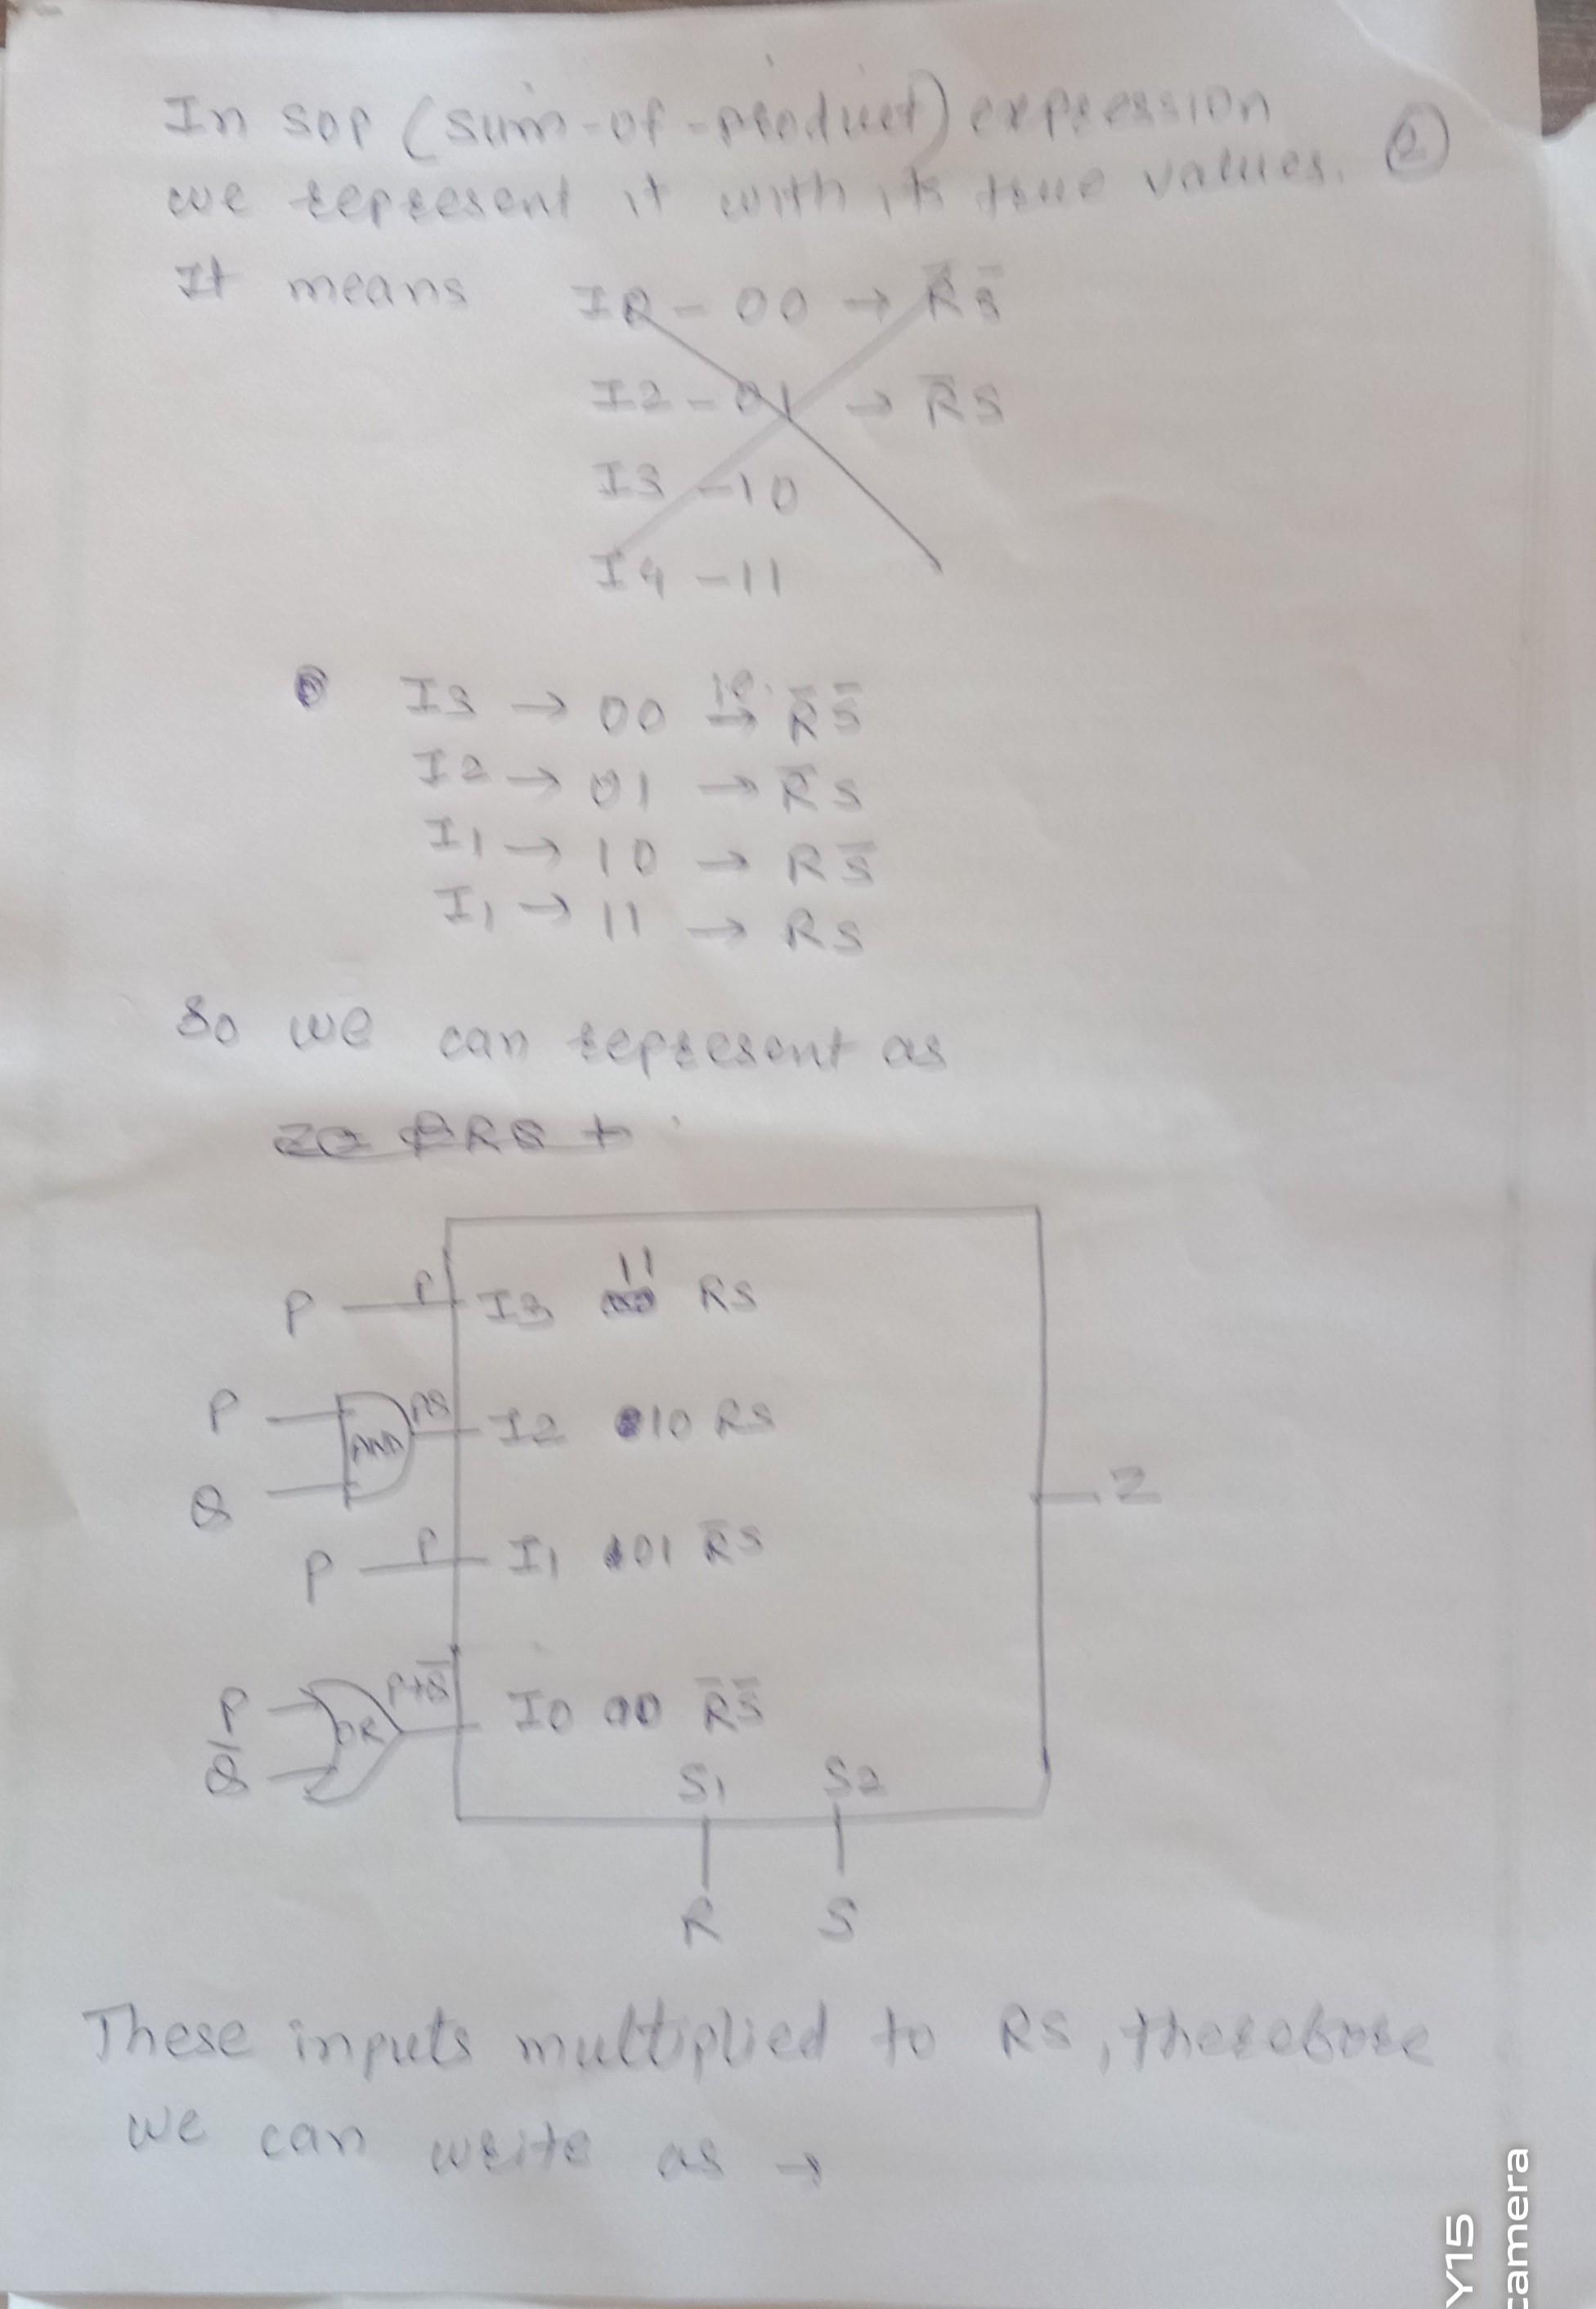 In SOP (sum-of-product) expression
we represent it with its true values. ②
It means I0 - 00 → R̅ S̅
I2 - 01 → R̅ S
I3 - 10
I4 - 11
I3 → 00 ie. → R̅ S̅
I2 → 01 → R̅ S
I1 → 10 → R S̅
I1 → 11 → R S
So we can represent as
P P I3 11 RS
P PQ I2 10 RS
AND
Q Z
P P I1 01 R̅S
P P+Q̅ I0 00 R̅S̅
OR
Q̅
S1 S2
R S
These inputs multiplied to RS, therefore
we can write as →
Y15
camera